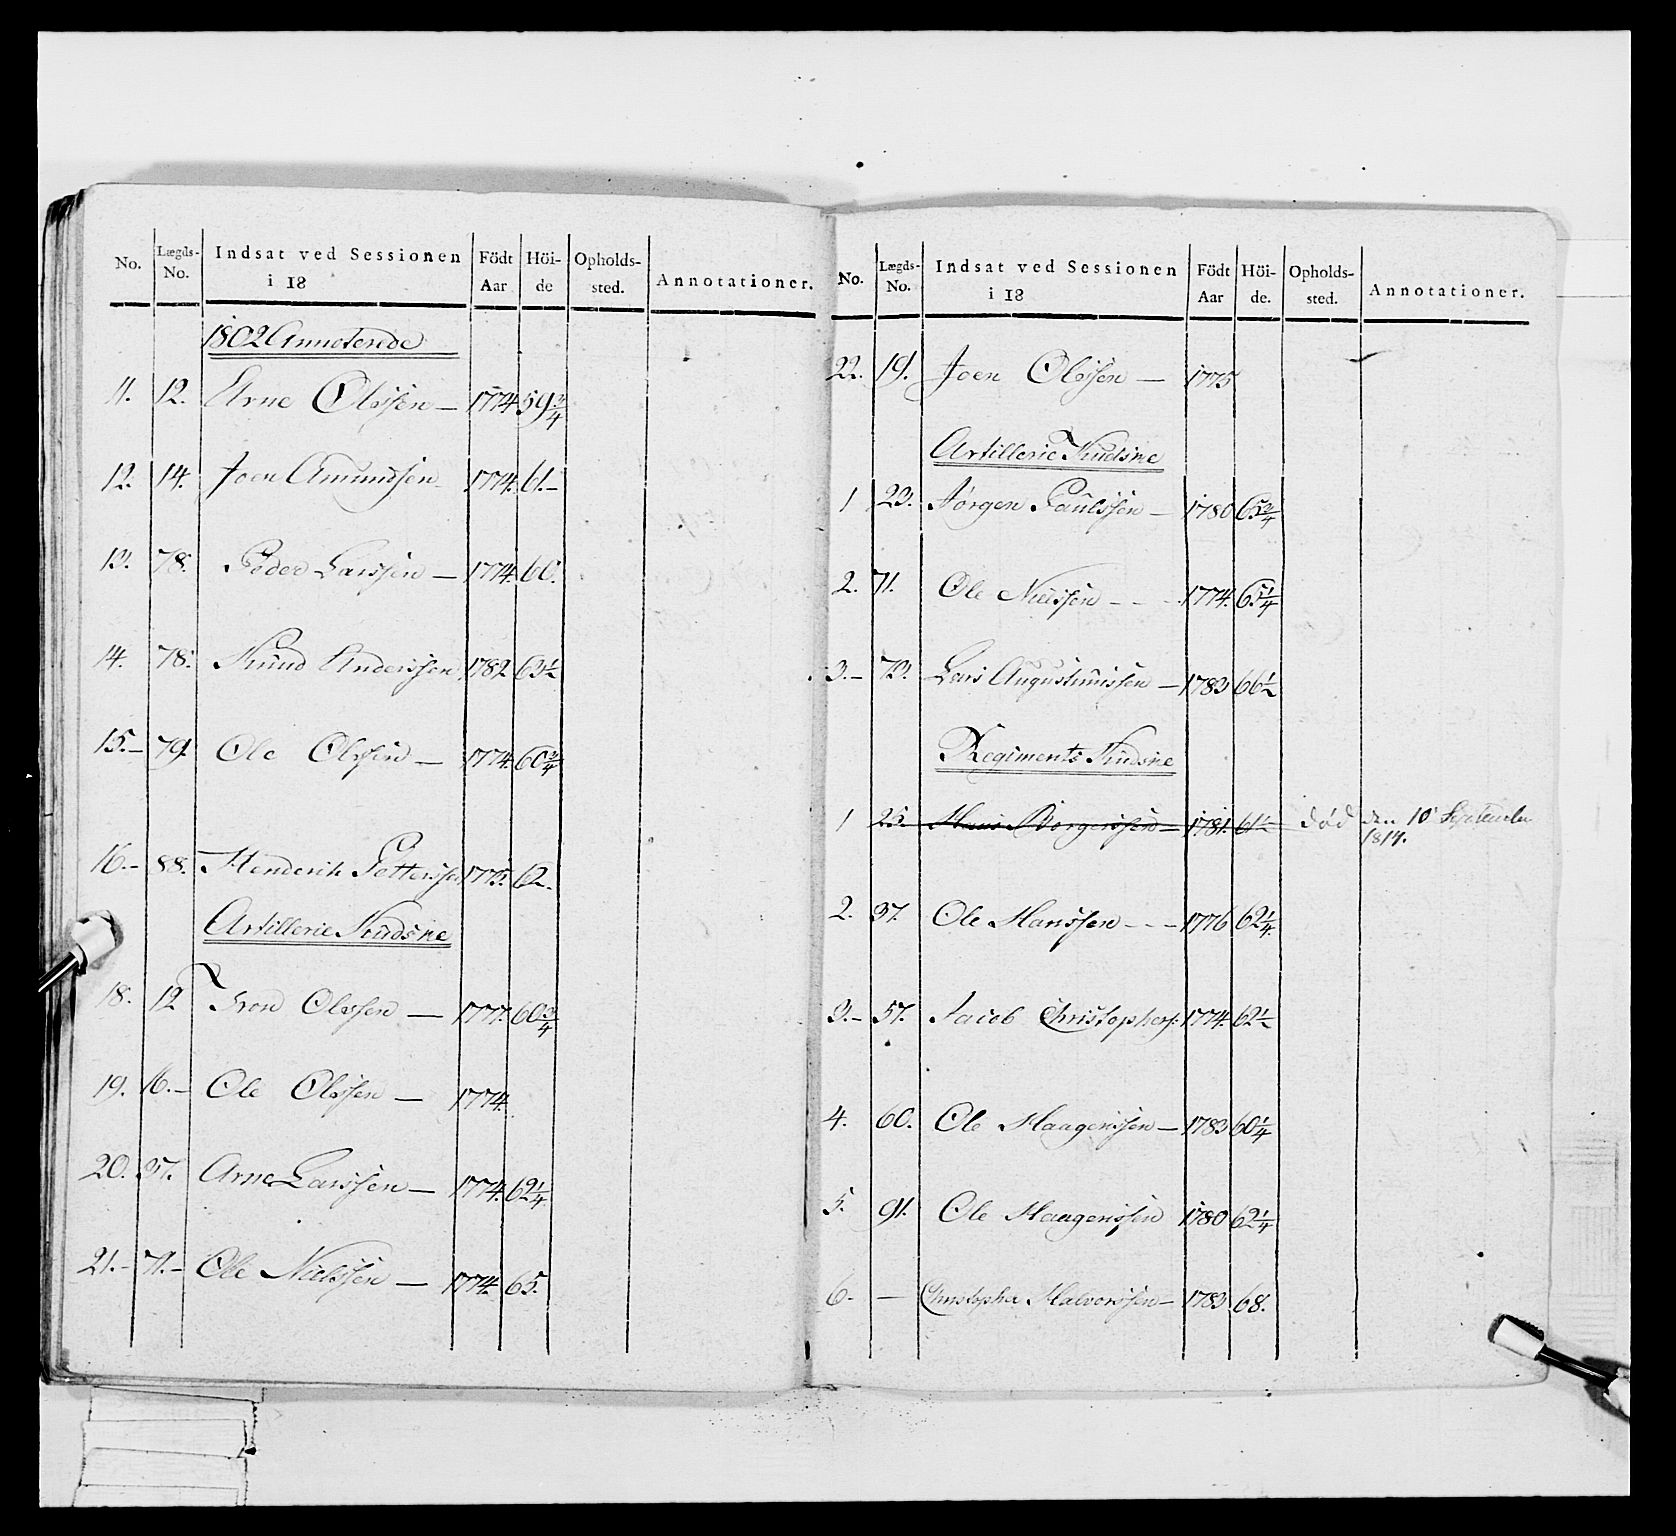 No. Lægds-No. Indsat ved Sessionen i 18 Födt Aar Höi-de Opholds-sted. Annotationer.
1802 Annoterede
11. 12. Arne Olssen — 1774 59 3/4
12. 14. Joen Amundsen 1774. 61.–
13. 78. Peder Larssen — 1774. 60.
14. 78. Knud Anderssen 1782 63 1/2
15.– 79. Ole Olssen — 1774. 60 3/4
16.– 88. Henderik Petterssen 1775. 62.
Artillerie Kudske
18. 12 Trond Olssen — 1777. 60 3/4
19. 16.– Ole Olssen — 1774.
20. 37. Arne Larssen — 1774. 62 1/4
21.– 71.– Ole Nielssen — 1774. 65.
No. Lægds-No. Indsat ved Sessionen i 18 Födt Aar Höi-de. Opholds-sted. Annotationer.
22. 19. Joen Olssen — 1775
Artillerie Kudske
1 23. Jørgen Paulssen — 1780 65 3/4
2. 71. Ole Nielssen - - - 1774. 65 1/4
3.– 73. Lars Augustinussen — 1783 66 1/2
Regiments Kudske
1 25. Hans Borgerssen — 1781. 61 1/2 død den 10 September
1814.
2. 37. Ole Hanssen - - - 1776 62 1/4
3.– 57. Jacob Christophers: 1774. 62 1/2
4. 60. Ole Haagenssen — 1783 60 1/4
5. 91. Ole Haagenssen 1780 62 1/4
6. — Christopher Halvorssen — 1783 68.